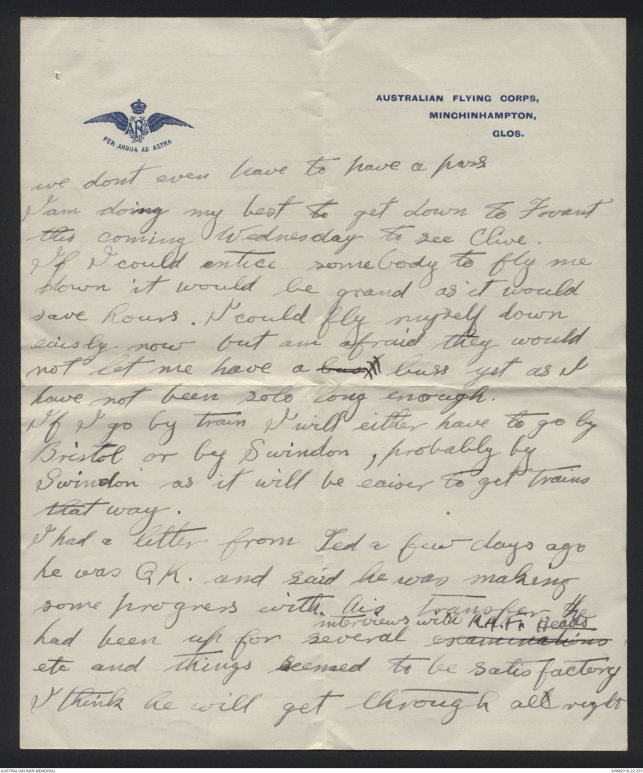 AUSTRALIAN FLYING CORPS,
MINCHINHAMPTON,
GLOS.
AFC
PER ARDUA AD ASTRA
we dont even have to have a pass
I am doing my best to get down to Fovant
this coming Wednesday to see Clive.
If I could entice somebody to fly me
down it would be grand as it would
save hours. I could fly myself down
eaisly now but am afraid they would
not let me have a buss yet as I
have not been solo long enough.
If I go by train I will either have to go by
Bristol or by Swindon, probably by
Swindon as it will be eaiser to get trains
that way.
I had a letter from Ted a few days ago
he was O.K. and said he was making
some progress with his transfer. He
interviews with R.A.F. Heads
had been up for several examinations
etc and things seemed to be satisfactory
I think he will get through all right
AUSTRALIAN WAR MEMORIAL